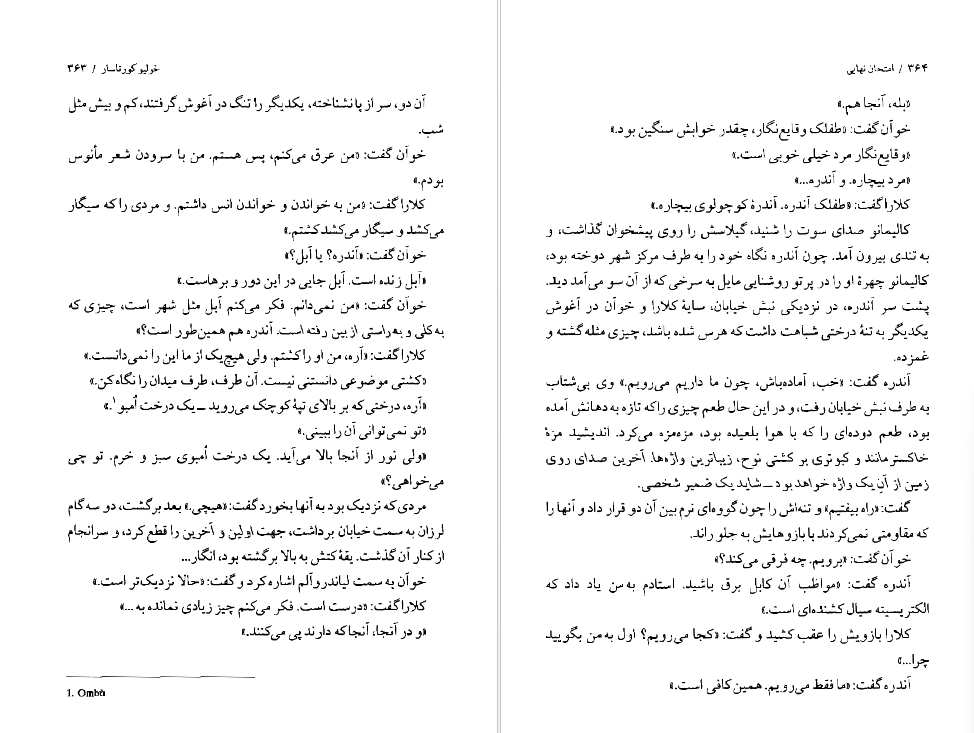 خولیو کورتاسار / ۳۶۳
آن دو، سر از پا نشناخته، یکدیگر را تنگ در آغوش گرفتند، کم و بیش مثل
شب.
خوآن گفت: «من عرق می‌کنم، پس هستم. من با سرودن شعر مأنوس
بودم.»
کلارا گفت: «من به خواندن و خواندن انس داشتم. و مردی را که سیگار
می‌کشد و سیگار می‌کشد کشتم.»
خوآن گفت: «آندره؟ یا آبل؟»
«آبل زنده است. آبل جایی در این دور و برهاست.»
خوآن گفت: «من نمی‌دانم. فکر می‌کنم آبل مثل شهر است، چیزی که
به کلی و به راستی از بین رفته است. آندره هم همین‌طور است؟»
کلارا گفت: «آره، من او را کشتم. ولی هیچ‌یک از ما این را نمی‌دانست.»
«کشتی موضوعی دانستنی نیست. آن طرف، طرف میدان را نگاه کن.»
«آره، درختی که بر بالای تپهٔ کوچک می‌روید ــ یک درخت اُمبو۱.»
«تو نمی‌توانی آن را ببینی.»
«ولی نور از آنجا بالا می‌آید. یک درخت اُمبوی سبز و خرم. تو چی
می‌خواهی؟»
مردی که نزدیک بود به آنها بخورد گفت: «هیچی.» بعد برگشت، دو سه گام
لرزان به سمت خیابان برداشت، جهت اولین و آخرین را قطع کرد، و سرانجام
از کنار آن گذشت. یقهٔ کتش به بالا برگشته بود، انگار...
خوآن به سمت لیاندروآلم اشاره کرد و گفت: «حالا نزدیک‌تر است.»
کلارا گفت: «درست است. فکر می‌کنم چیز زیادی نمانده به ...»
«و در آنجا، آنجا که دارند پی می‌کنند.»
1. Ombú
۳۶۴ / امتحان نهایی
«بله، آنجا هم.»
خوآن گفت: «طفلک وقایع‌نگار، چقدر خوابش سنگین بود.»
«وقایع‌نگار مرد خیلی خوبی است.»
«مرد بیچاره. و آندره...»
کلارا گفت: «طفلک آندره. آندرهٔ کوچولوی بیچاره.»
کالیمانو صدای سوت را شنید، گیلاسش را روی پیشخوان گذاشت، و
به تندی بیرون آمد. چون آندره نگاه خود را به طرف مرکز شهر دوخته بود،
کالیمانو چهرهٔ او را در پرتو روشنایی مایل به سرخی که از آن سو می‌آمد دید.
پشت سر آندره، در نزدیکی نبش خیابان، سایهٔ کلارا و خوآن در آغوش
یکدیگر به تنهٔ درختی شباهت داشت که هرس شده باشد، چیزی مثله گشته و
غمزده.
آندره گفت: «خب، آماده‌باش، چون ما داریم می‌رویم.» وی بی‌شتاب
به طرف نبش خیابان رفت، و در این حال طعم چیزی را که تازه به دهانش آمده
بود، طعم دوده‌ای را که با هوا بلعیده بود، مزه‌مزه می‌کرد. اندیشید مزهٔ
خاکستر مانند و کبوتری بر کشتی نوح، زیباترین واژه‌ها. آخرین صدای روی
زمین از آنِ یک واژه خواهد بود ــ شاید یک ضمیر شخصی.
گفت: «راه بیفتیم» و تنه‌اش را چون گوه‌ای نرم بین آن دو قرار داد و آنها را
که مقاومتی نمی‌کردند با بازوهایش به جلو راند.
خوآن گفت: «برویم. چه فرقی می‌کند؟»
آندره گفت: «مواظب آن کابل برق باشید. استادم به من یاد داد که
الکتریسیته سیال کشنده‌ای است.»
کلارا بازویش را عقب کشید و گفت: «کجا می‌رویم؟ اول به من بگویید
چرا...»
آندره گفت: «ما فقط می‌رویم. همین کافی است.»